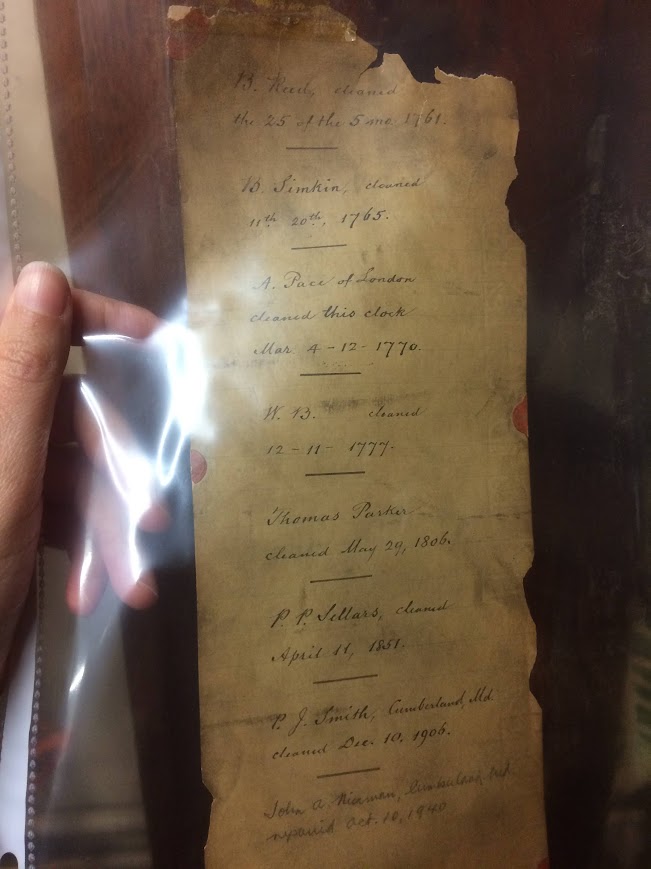 B. Reed, cleaned
the 25 of the 5 mo 1761.
B. Simkin, cleaned
11th 20th, 1765.
A. Pace of London
cleaned this clock
Mar. 4-12-1770.
W. B. cleaned
12-11-1777.
Thomas Parker
cleaned May 29, 1806.
P. P. Sellars, cleaned
April 11, 1851.
P. J. Smith, Cumberland, Md.
cleaned Dec. 10, 1906.
John A. Cumberland, Md
repaired Oct. 10, 1940